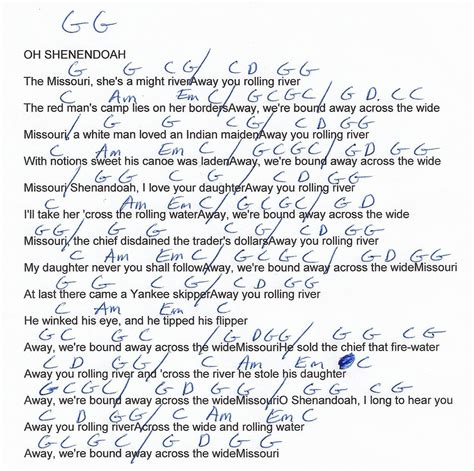 G G
OH SHENENDOAH
G G C G / C D G G
The Missouri, she's a might riverAway you rolling river
C Am Em C / G C G C / G D. C C
The red man's camp lies on her bordersAway, we're bound away across the wide
/ G G C G / C D G G
Missouri, a white man loved an Indian maidenAway you rolling river
C Am Em C / G C G C / G D G G
With notions sweet his canoe was ladenAway, we're bound away across the wide
/ G G C G / C D G G
Missouri Shenandoah, I love your daughterAway you rolling river
C Am Em C / G C G C / G D
I'll take her 'cross the rolling waterAway, we're bound away across the wide
G G / G G C G / C D G G
Missouri, the chief disdained the trader's dollarsAway you rolling river
C Am Em C / G C G C / G D G G
My daughter never you shall followAway, we're bound away across the wideMissouri
G G C G / C D G G
At last there came a Yankee skipperAway you rolling river
C Am Em C
He winked his eye, and he tipped his flipper
G C G C / G D G G / G G C G
Away, we're bound away across the wideMissouriHe sold the chief that fire-water
C D G G / C Am Em C
Away you rolling river and 'cross the river he stole his daughter
G C G C / G D G G / G G C G
Away, we're bound away across the wideMissouriO Shenandoah, I long to hear you
C D G G / C Am Em C
Away you rolling riverAcross the wide and rolling water
G C G C / G D G G
Away, we're bound away across the wideMissouri